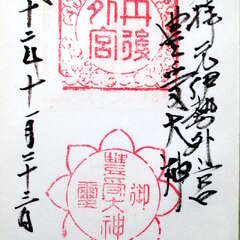 拝 元伊勢外宮
豊受大神
丹後
外宮
御
豐受大神
靈
十二年十一月二十三日